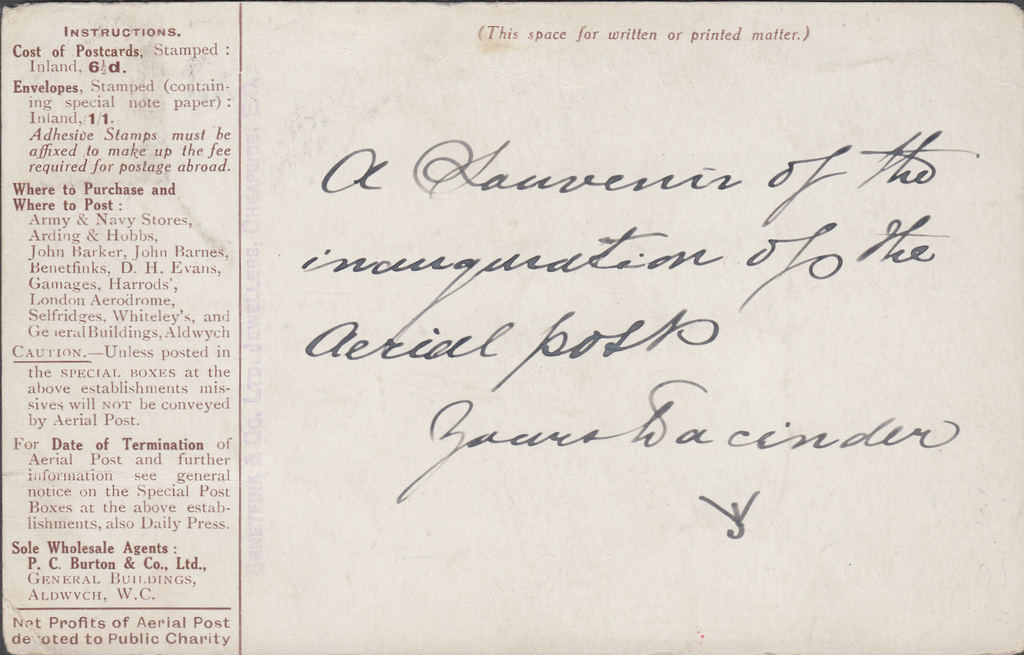 INSTRUCTIONS.
Cost of Postcards, Stamped :
Inland, 6½d.
Envelopes, Stamped (contain-
ing special note paper) :
Inland, 1/1.
Adhesive Stamps must be
affixed to make up the fee
required for postage abroad.
Where to Purchase and
Where to Post :
Army & Navy Stores,
Arding & Hobbs,
John Barker, John Barnes,
Benetfinks, D. H. Evans,
Gamages, Harrods',
London Aerodrome,
Selfridges, Whiteley's, and
General Buildings, Aldwych
CAUTION.—Unless posted in
the SPECIAL BOXES at the
above establishments mis-
sives will NOT be conveyed
by Aerial Post.
For Date of Termination of
Aerial Post and further
information see general
notice on the Special Post
Boxes at the above estab-
lishments, also Daily Press.
Sole Wholesale Agents :
P. C. Burton & Co., Ltd.,
GENERAL BUILDINGS,
ALDWYCH, W.C.
Net Profits of Aerial Post
devoted to Public Charity
& CO. LTD. JEWELLERS, CHEAPSIDE, E.C.
(This space for written or printed matter.)
A Souvenir of the
inauguration of the
Aerial post
Yours to a cinder